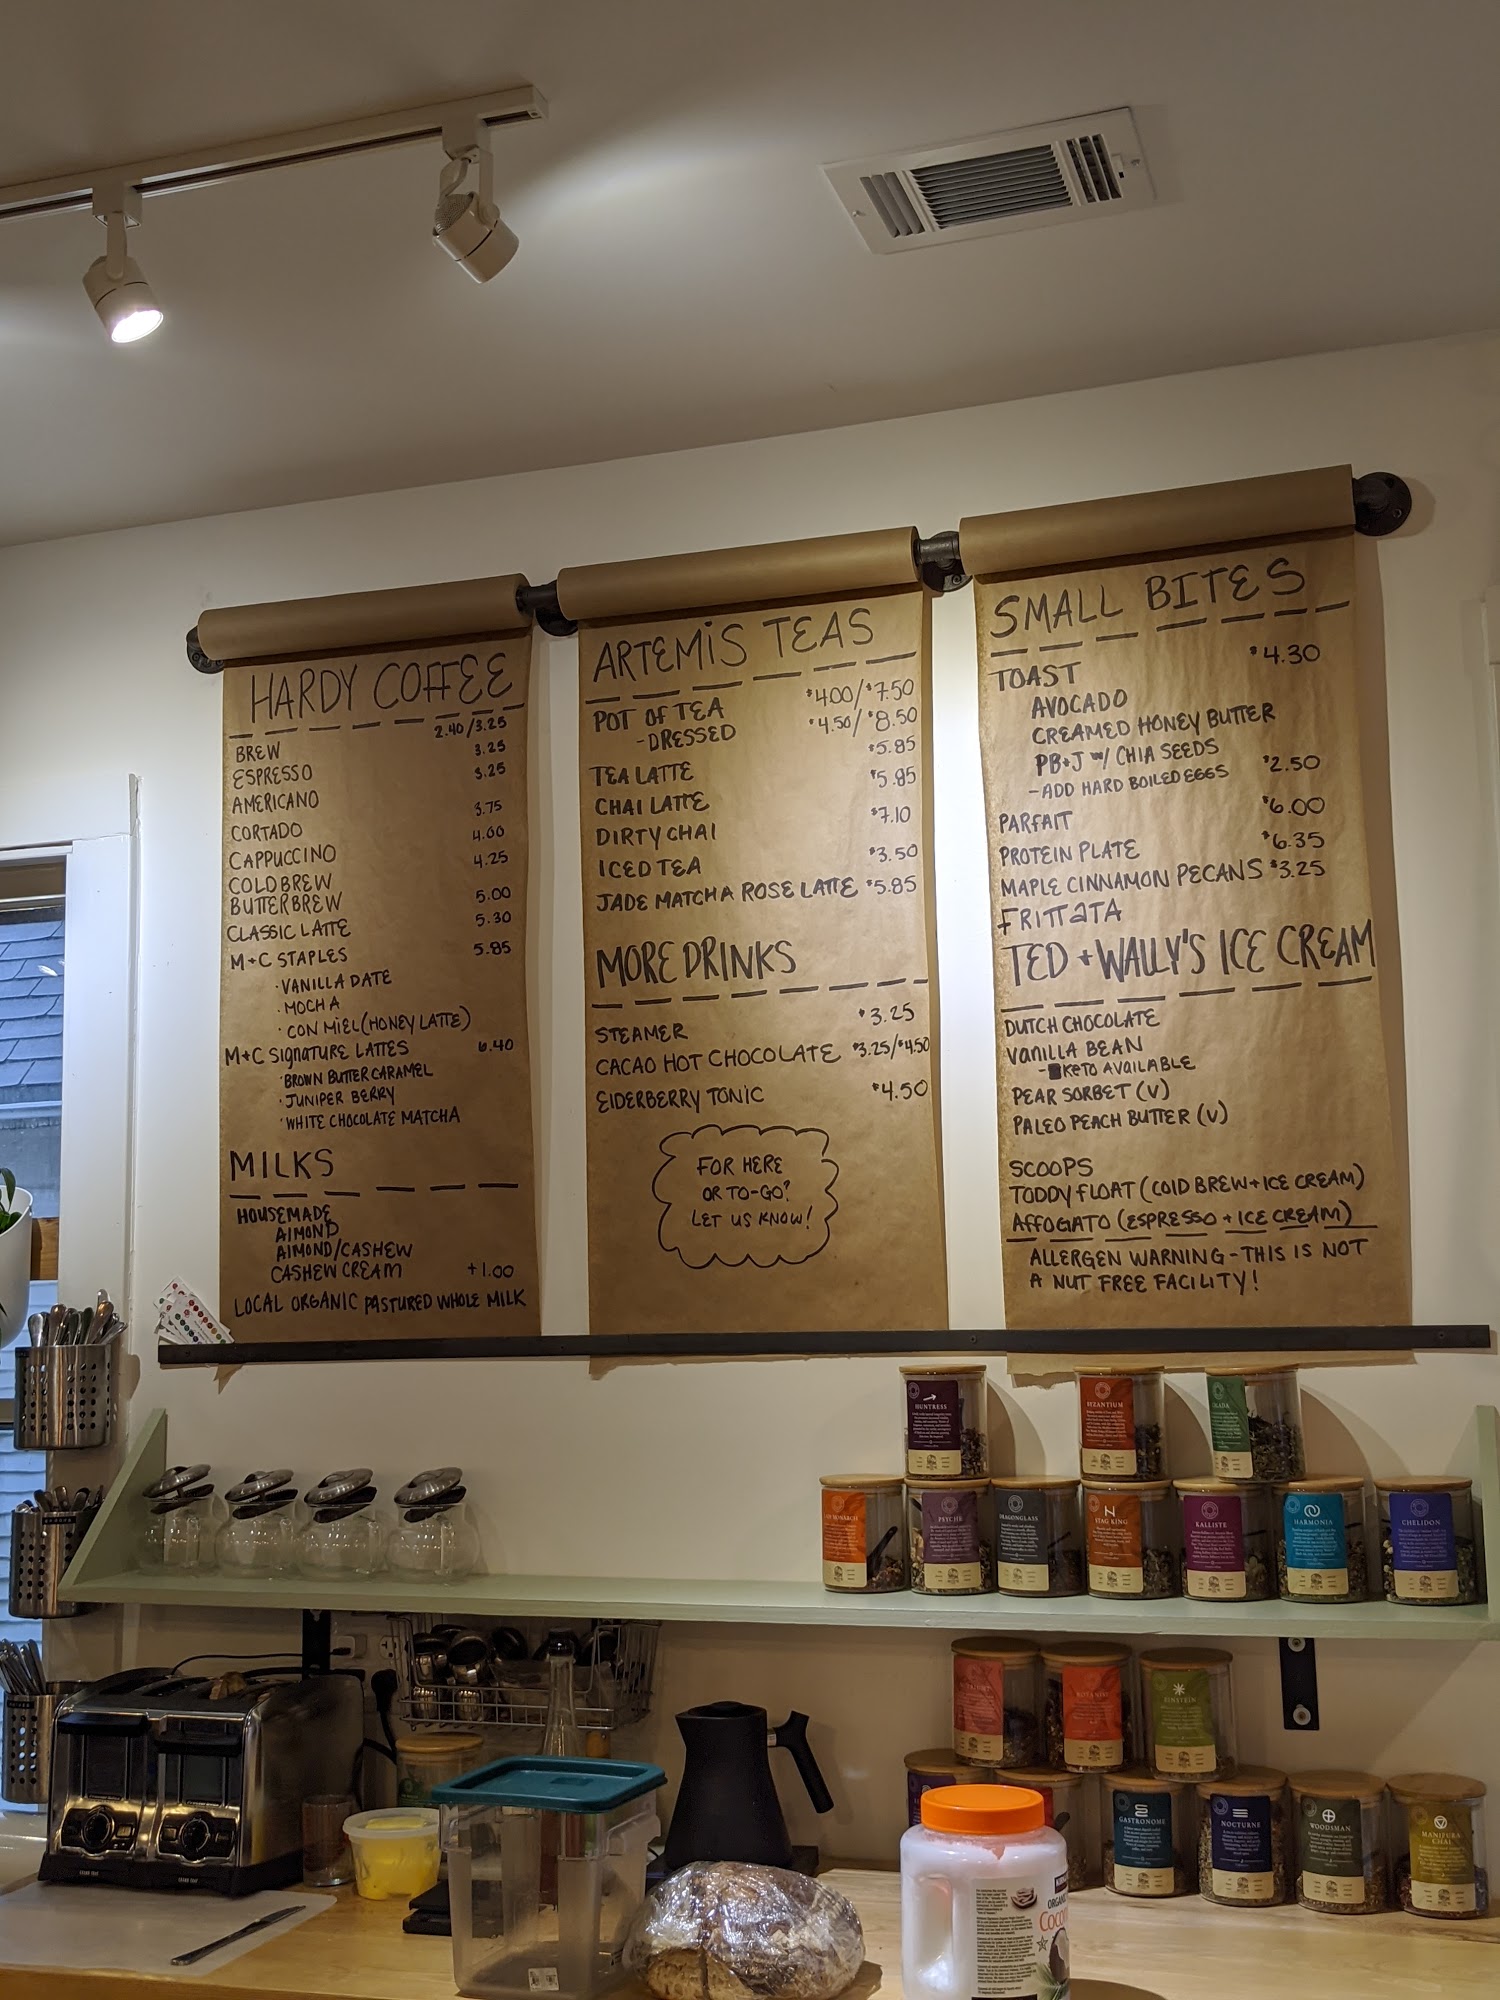 HARDY COFFEE
2.40/3.25
BREW
3.25
ESPRESSO
3.25
AMERICANO
3.75
CORTADO
4.00
CAPPUCCINO
4.25
COLD BREW
BUTTER BREW
5.00
CLASSIC LATTE
5.30
M+C STAPLES
5.85
· VANILLA DATE
· MOCHA
· CON MIEL (HONEY LATTE)
M+C SIGNATURE LATTES 6.40
· BROWN BUTTER CARAMEL
· JUNIPER BERRY
· WHITE CHOCOLATE MATCHA
MILKS
HOUSEMADE
ALMOND
ALMOND/CASHEW
CASHEW CREAM +1.00
LOCAL ORGANIC PASTURED WHOLE MILK
ARTEMIS TEAS
POT OF TEA $4.00/$7.50
-DRESSED $4.50/$8.50
$5.85
TEA LATTE
$5.85
CHAI LATTE
$7.10
DIRTY CHAI
ICED TEA $3.50
JADE MATCHA ROSE LATTE $5.85
MORE DRINKS
STEAMER $3.25
CACAO HOT CHOCOLATE $3.25/$4.50
ELDERBERRY TONIC $4.50
FOR HERE
OR TO-GO?
LET US KNOW!
SMALL BITES
TOAST $4.30
AVOCADO
CREAMED HONEY BUTTER
PB+J W/ CHIA SEEDS
-ADD HARD BOILED EGGS $2.50
PARFAIT $6.00
PROTEIN PLATE $6.35
MAPLE CINNAMON PECANS $3.25
FRITTATA
TED + WALLY'S ICE CREAM
DUTCH CHOCOLATE
VANILLA BEAN
- KETO AVAILABLE
PEAR SORBET (V)
PALEO PEACH BUTTER (V)
SCOOPS
TODDY FLOAT (COLD BREW + ICE CREAM)
AFFOGATO (ESPRESSO + ICE CREAM)
ALLERGEN WARNING - THIS IS NOT
A NUT FREE FACILITY!
HUNTRESS
BYZANTIUM
PSYCHE
DRAGONGLASS
STAG KING
KALLISTE
HARMONIA
CHELIDON
BOTANIST
EINSTEIN
GASTRONOME
NOCTURNE
WOODSMAN
MANIPURA
CHAI
ORGANIC